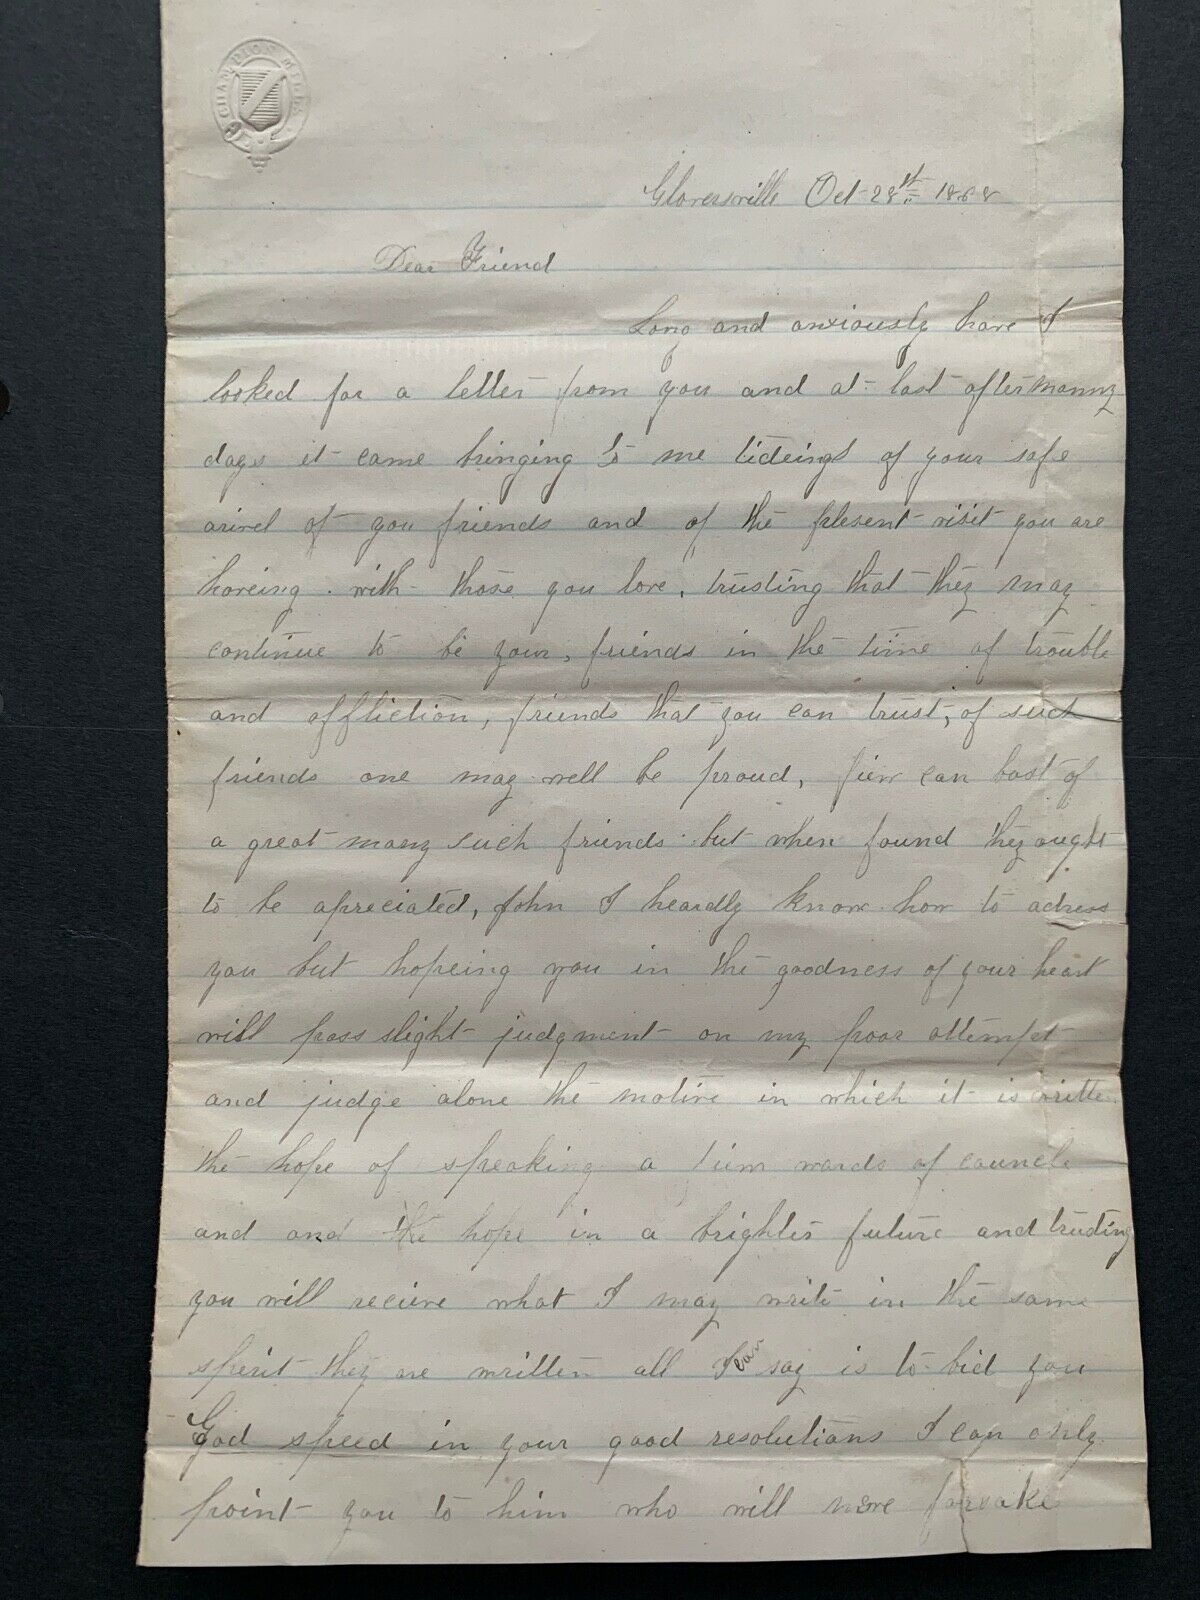 CHAMPION MILLS
Gloversville Oct 28st 1868
Dear Friend
Long and anxiously have I
looked for a letter from you and at last after manny
days it came bringing to me tideings of your safe
arivel of you friends and of the plesent visit you are
haveing with those you love, trusting that they may
continue to be your, friends in the time of trouble
and affliction, friends that you can trust, of such
friends one may well be proud, fiew can bost of
a great many such friends but when found they ought
to be apreciated, John I heardly know how to adress
you but hopeing you in the goodness of your heart
will pass slight judgment on my poor attempt
and judge alone the motive in which it is written
the hope of speaking a fiew words of councle
and and the hope in a brighter future and trusting
you will recieve what I may write in the same
spirit they are written all I can say is to bid you
God speed in your good resolutions I can only
point you to him who will never forsake